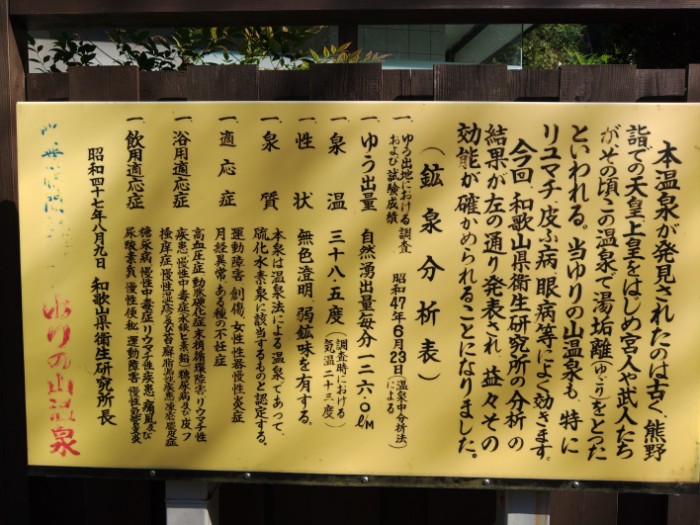 本温泉が発見されたのは古く、熊野
詣での天皇上皇をはじめ宮人や武人たち
がその頃この温泉で湯垢離(ゆごり)をとった
といわれる。当ゆりの山温泉も、特に
リユマチ、皮ふ病、眼病等によく効きます。
今回、和歌山県衛生研究所の分析の
結果が左の通り発表され、益々その
効能が確かめられることになりました。
(鉱泉分析表)
一、ゆう出地における調査
および試験成績 昭和47年6月23日(温泉中分析法)による
一、ゆう出量 自然湧出量毎分一二六・0ℓM
一、泉温 三十八・五度(調査時における
気温二十三度)
一、性状 無色澄明 弱鉱味を有する。
一、泉質 本泉は温泉法による温泉であって、
硫化水素泉に該当するものと認定する。
一、適応症 運動障害 創傷 女性性器慢性炎症
月経異常 ある種の不妊症
一、浴用適応症 高血圧症 動脈硬化症 末梢循環障害 リウマチ性
疾患 慢性中毒症(水銀と素鉛) 糖尿病 及び 皮フ
掻痒症 慢性湿疹及び苔癬
一、飲用適応症 糖尿病 慢性中毒症 リウマチ性疾患 痛風及び
尿酸素質 慢性便秘 運動障害 慢性
昭和四十七年八月九日 和歌山県衛生研究所長
ゆりの山温泉